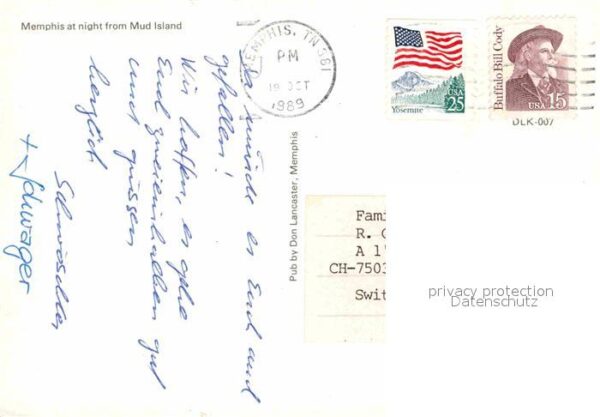 Memphis at night from Mud Island
MEMPHIS, TN 381
PM
19 OCT
1989
Yosemite
USA 25
Buffalo Bill Cody
USA 15
DLK-007
Da würde es Euch auch
gefallen!
Wir hoffen, es gehe
Euch zweieinhalben gut
und grüssen
herzlich
Schwöschter
+ Schwager
Pub by Don Lancaster, Memphis
Fami
R.
A 1
CH-7503
Swit
privacy protection
Datenschutz